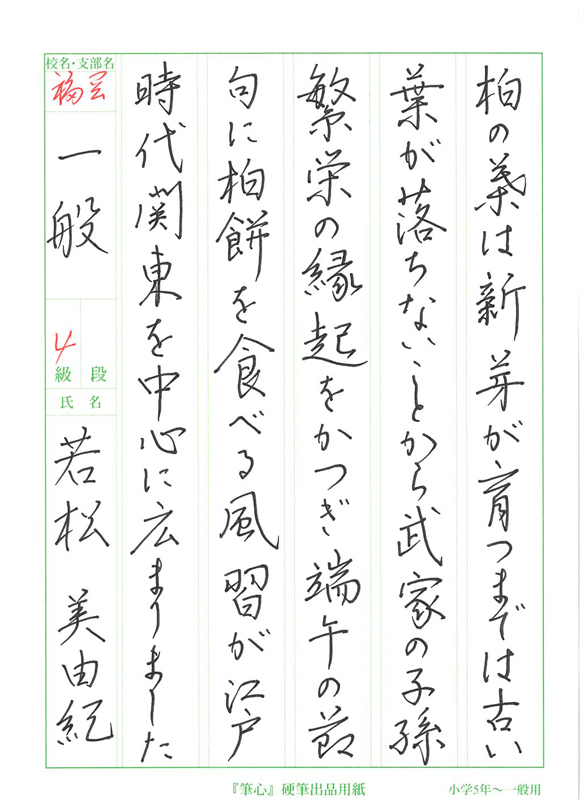 柏の葉は新芽が育つまでは古い
葉が落ちないことから武家の子孫
繁栄の縁起をかつぎ端午の節
句に柏餅を食べる風習が江戸
時代関東を中心に広まりました
校名・支部名
福岡
一般
4
級 段
氏名
若松 美由紀
『筆心』硬筆出品用紙
小学5年～一般用